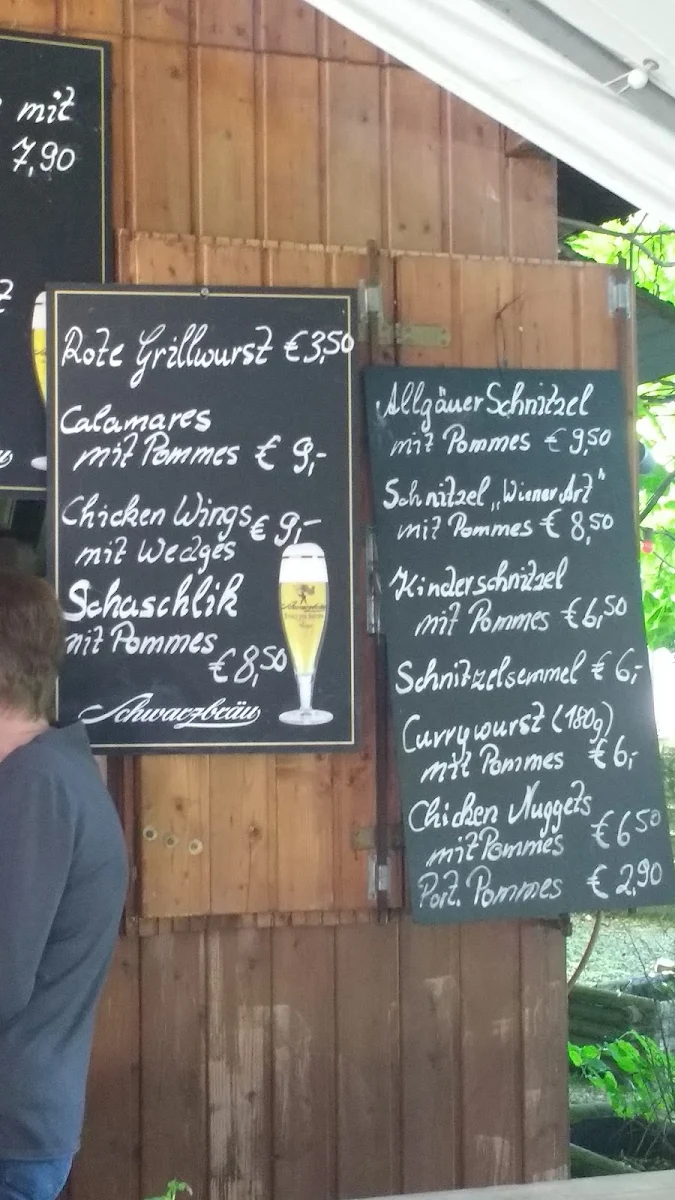 mit
7,90
Rote Grillwurst €3,50
Calamares
mit Pommes € 9,-
Chicken Wings € 9,-
mit Wedges
Schaschlik
mit Pommes
€ 8,50
Schwarzbräu
Allgäuer Schnitzel
mit Pommes € 9,50
Schnitzel „Wiener Art"
mit Pommes € 8,50
Kinderschnitzel
mit Pommes €6,50
Schnitzelsemmel € 6,-
Currywurst (180g)
mit Pommes € 6,-
Chicken Nuggets
mit Pommes €6,50
Port. Pommes € 2,90